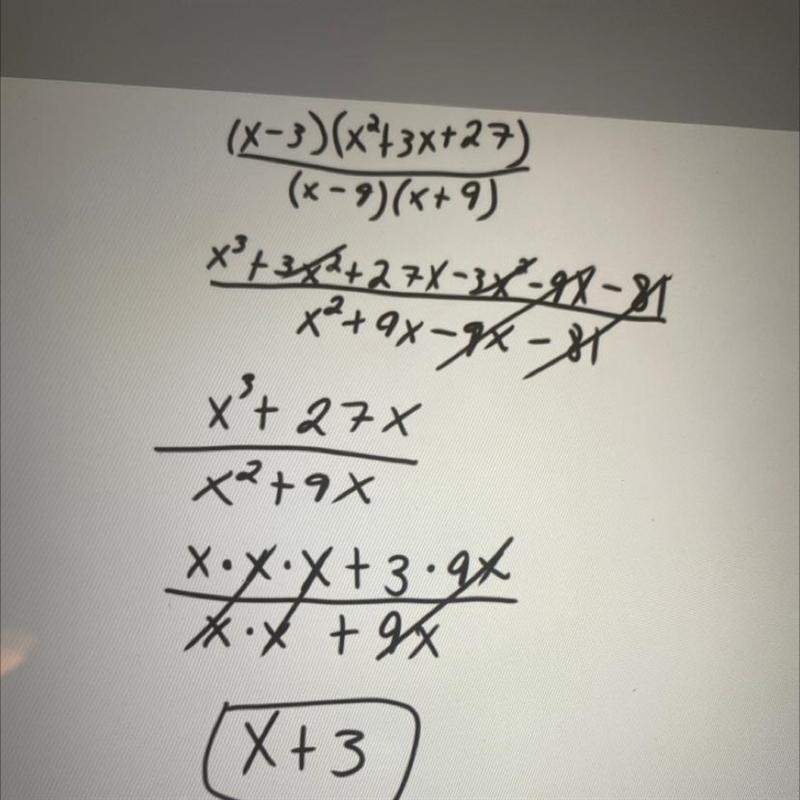 (x-3)(x²+3x+27)
(x-9)(x+9)
x³+3x²+27x-3x²-9x-81
x²+9x-9x-81
x³+27x
x²+9x
x·x·x+3·9x
x·x+9x
x+3